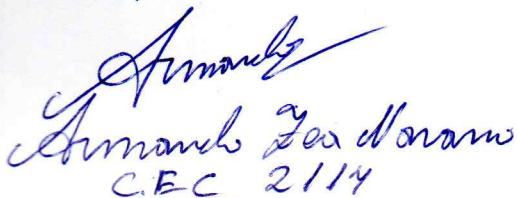 Armando
Armando Zea Navarro
C.E.C 2114